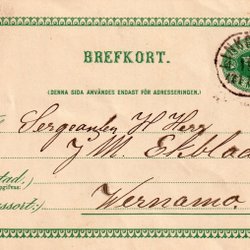 BREFKORT.
(DENNA SIDA ANVÄNDES ENDAST FÖR ADRESSERINGEN.)
Sergeanten H Herr
J M. Ekblad
Wernamo